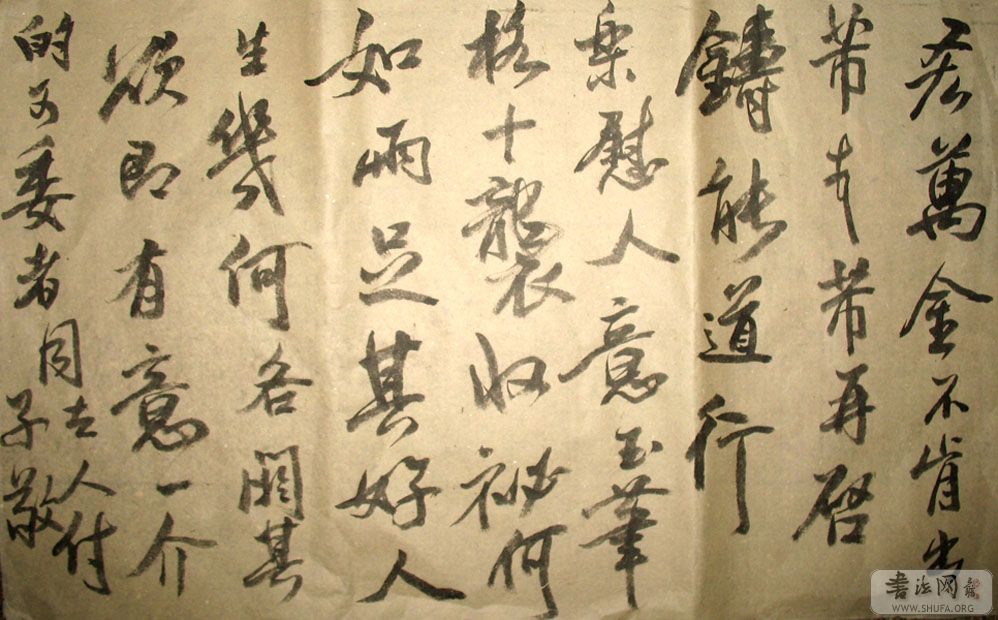 萬金不肯出
芾芾再啓
鑄能道行
樂慰人意玉筆
格十襲收祕何
如雨足其好人
生幾何各闕其
欲即有意一介
的可委者同去人付
子敬
書法网
WWW.SHUFA.ORG